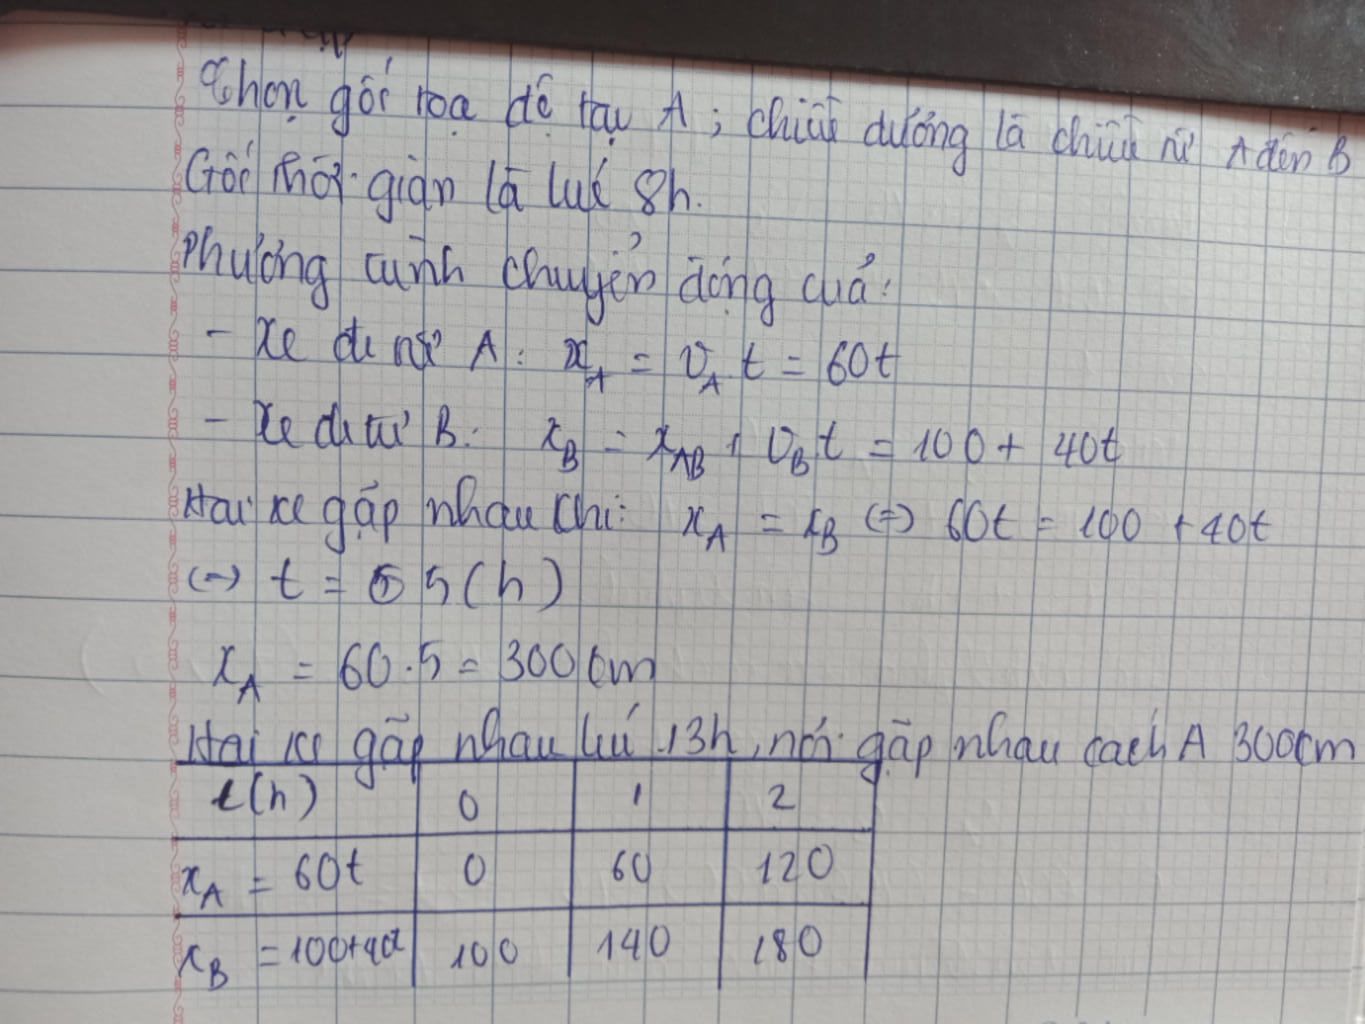 Chọn gốc toạ độ tại A; chiều dương là chiều từ A đến B
Gốc thời gian là lúc 8h.
Phương trình chuyển động của:
- Xe đi từ A: x_A = v_A t = 60t
- Xe đi từ B: x_B = x_AB + v_B t = 100 + 40t
Hai xe gặp nhau khi: x_A = x_B (=) 60t = 100 + 40t
(=) t = 5 (h)
x_A = 60.5 = 300 cm
Hai xe gặp nhau lúc 13h, nơi gặp nhau cách A 300cm
t(h) 0 1 2
x_A = 60t 0 60 120
x_B = 100+40t 100 140 180